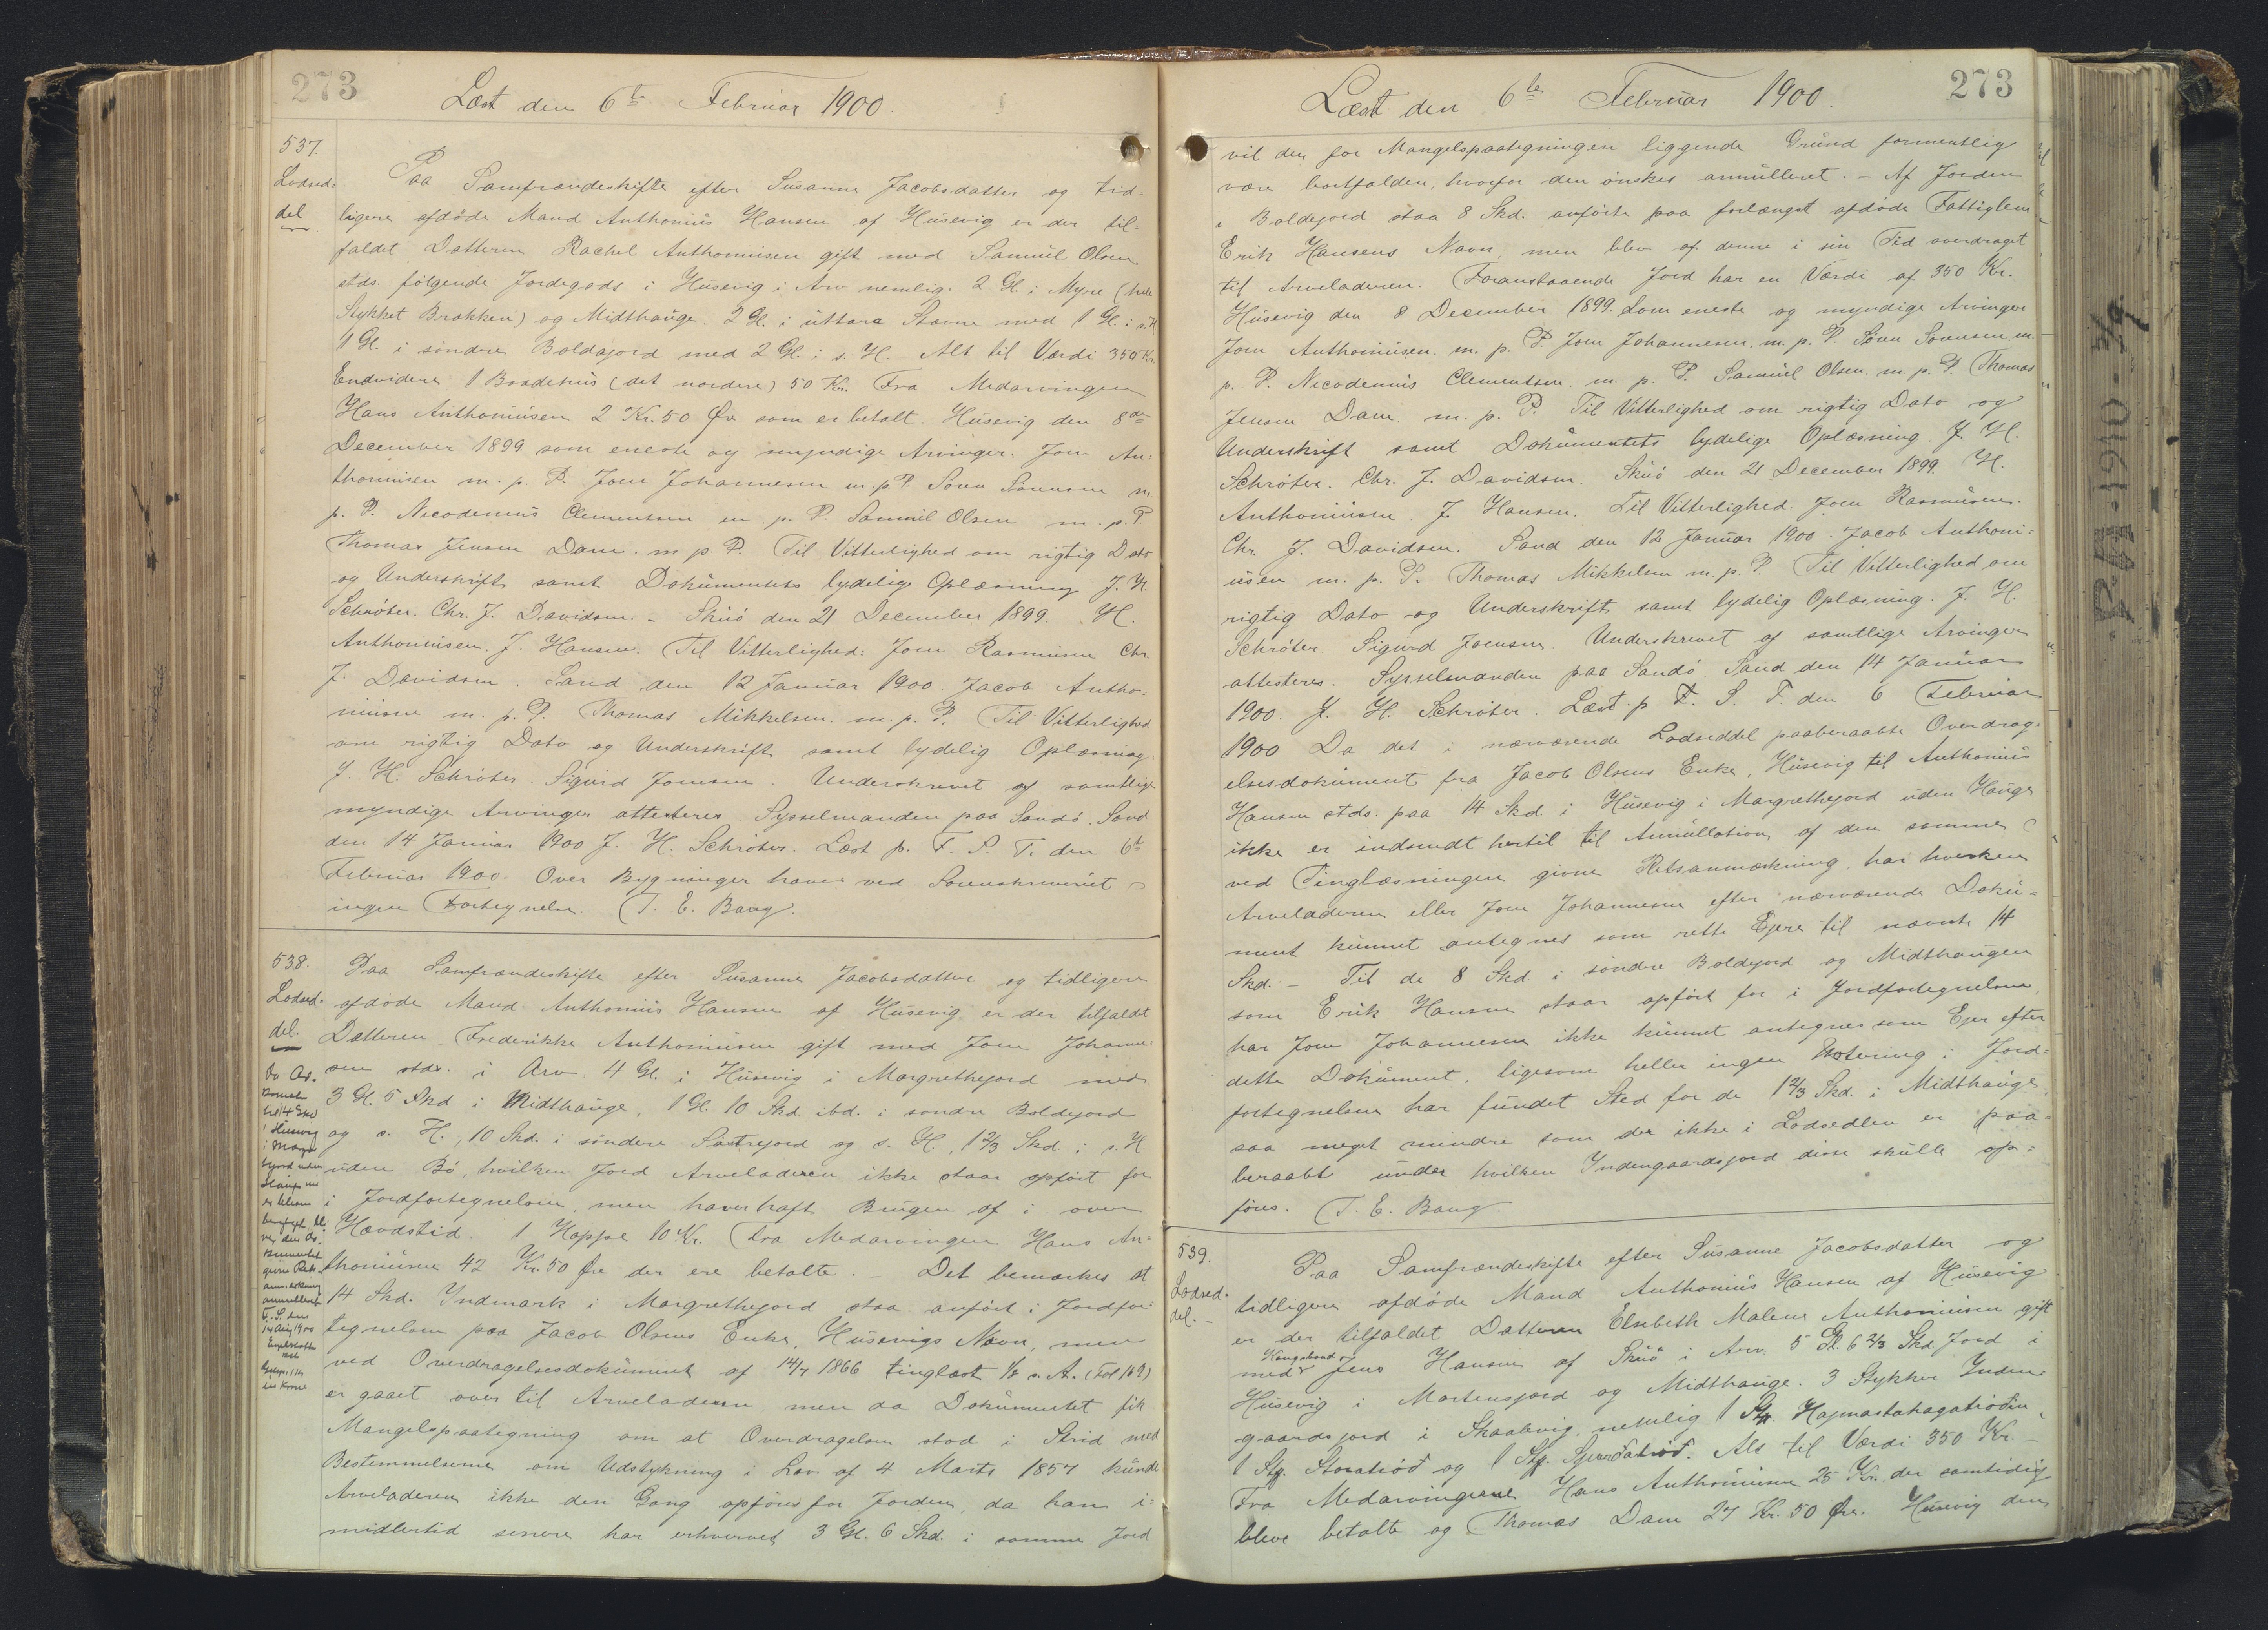 273
Læst den 6te Februar 1900.
537.
Lodsed=
del
Paa Samfrændeskifte efter Susanne Jacobsdatter og tid-
ligere afdöde Mand Anthonius Hansen af Húsevig er der til-
faldet Datteren Rachel Anthoniusen gift med Samúel Olsen
stds. følgende Jordegods i Húsevig i Arv nemlig. 2 Gl. i Myre (hele
Stykket Brekken) og Midthaúge. 2 Gl. i úttara Stovne med 1 Gl. i s. H
1 Gl. i söndre Boldajord med 2 Gl. i s. H. Alt til Værdi 350 Kr.
Endvidere 1 Baadehús (det nordere) 50 Kr. Fra Medarvingen
Hans Anthoniúsen 2 Kr. 50 Øre som er betalt. Húsevig den 8de
December 1899 som eneste og myndige Arvinger. Joen An-
thoniusen m. p. P. Joen Johannesen m. p. P. Sören Sörensen m.
p. P. Nicodemús Clementsen m. p. P. Samúel Olsen m. p. P.
Thomas Jensen Dam. m. p. P. Til Vitterlighed om rigtig Dato
og Underskrift samt Dokúmentets lydelige Oplæsning J. H.
Schröter. Chr. J. Davidsen. - Skúö den 21 December 1899. H.
Anthoniúsen. J. Hansen. Til Vitterlighed: Joen Rasmúsen Chr.
J. Davidsen. Sand den 12 Janúar 1900. Jacob Antho-
niúsen m. p. P. Thomas Mikkelsen. m. p. P. Til Vitterlighed
om rigtig Dato og Underskrift samt lydelig Oplæsning.
J. H. Schröter. Sigúrd Joensen. Underskrevet af samtlige
myndige Arvinger attesteres Sysselmanden paa Sandö. Sand
den 14 Janúar 1900 J. H. Schröter. Læst p. F. S. T. den 6te
Febrúar 1900. Over Bygninger haves ved Sorenskriveriet
ingen Fortegnelse. T. E. Bang.
538.
Lodsed-
del.
Paa Samfrændeskifte efter Susanne Jacobsdatter og tidligere
afdöde Mand Anthoniús Hansen af Húsevig er der tilfaldet
Datteren Frederikke Anthoniúsen gift med Joen Johanne-
sen stds. i Arv 4 Gl. i Húsevig i Margrethejord med
3 Gl. 5 Skd i Midthaúge, 1 Gl. 10 Skd ibd. i söndre Boldejord
og s. H., 10 Skd. i söndere Sörtrejord og s. H., 1 2/3 Skd. i s. H
úden Bö, hvilken Jord Arveladeren ikke staar opført for
i Jordfortegnelsen, men haver haft Brugen af i over
Hævdstid. 1 Hoppe 10 Kr. Fra Medarvingen Hans An-
thoniúsen 42 Kr. 50 Øre der ere betalte. - Det bemærkes at
14 Skd. Indmark i Margrethejord staa anført i Jordfor-
tegnelsen paa Jacob Olsens Enke, Húsevigs Navn, men
ved Overdragelsesdokúment af 14/7 1866 tinglæst 1/8 s. A. (Fol 169)
er gaaet over til Arveladeren, men da Dokúmentet fik
Mangelspaategning om at Overdragelsen stod i Strid med
Bestemmelserne om Udstykning i Lov af 4 Marts 1857 kúnde
Arveladeren ikke den Gang opføres for Jorden, da han i-
midlertid senere har erhvervet 3 Gl. 6 Skd. i samme Jord
273
Læst den 6te Febrúar 1900.
vil den for Mangelspaategningen liggende Grúnd formentlig
være bortfalden, hvorfor den önskes annúlleret. - Af Jorden
i Boldejord staa 8 Skd. anførte paa forlængst afdöde Fattiglem
Erik Hansens Navn, men blev af denne i sin Tid overdraget
til Arveladeren. Foranstaaende Jord har en Værdi af 350 Kr.
Húsevig den 8 December 1899. Som eneste og myndige Arvinger
Joen Anthoniúsen. m. p. P. Joen Johannesen. m. p. P. Sören Sörensen m.
p. P. Nicodemús Clementsen. m. p. P. Samúel Olsen. m. p. P. Thomas
Jensen Dam. m. p. P. Til Vitterlighed om rigtig Dato og
Underskrift samt Dokúmentets lydelige Oplæsning J. H.
Schröter. Chr. J. Davidsen. Skúö den 21 December 1899. H.
Anthoniúsen J. Hansen. Til Vitterlighed. Joen Rasmúsen.
Chr. J. Davidsen. Sand den 12 Janúar 1900. Jacob Anthoni-
úsen m. p. P. Thomas Mikkelsen m. p. P. Til Vitterlighed om
rigtig Dato og Underskrift samt lydelig Oplæsning. J. H.
Schröter. Sigúrd Joensen. Underskrevet af samtlige Arvinger
attesteres. Sysselmanden paa Sandö. Sand den 14 Janúar
1900. J. H. Schröter. Læst p. F. S. T. den 6 Febrúar
1900 Da det i nærværende Lodseddel paaberaabte Overdrag-
elsesdokúment fra Jacob Olsens Enke, Húsevig til Anthoniús
Hansen stds. paa 14 Skd. i Húsevig i Margrethejord úden Haúge
ikke er indsendt hertil til Annúllation af den samme
ved Tinglæsningen givne Retsanmærkning, har hverken
Arveladeren eller Joen Johannesen efter nærværende Dokú-
ment kúnnet antegnes som rette Ejere til nævnte 14
Skd. - Til de 8 Skd i söndre Boldejord og Midthaúgen
som Erik Hansen staar opført for i Jordfortegnelsen,
har Joen Johannesen ikke kúnnet antegnes som Ejer efter
dette Dokúment, ligesom heller ingen Notering i Jord-
fortegnelsen har fúndet Sted for de 1 2/3 Skd. i Midthaúge,
saa meget mindre som der ikke i Lodsedlen er paa-
beraabt únder hvilken Indengaardsjord disse skúlle op-
føres. T. E. Bang.
539.
Lodsed-
del. -
Paa Samfrændeskifte efter Súsanne Jacobsdatter og
tidligere afdöde Mand Anthoniús Hansen af Húsevig
er der tilfaldet Datteren Elsebeth Malene Anthoniúsen gift
Kongsbonde
med Jens Hansen af Skúö i Arv 5 Gl. 6 2/3 Skd. Jord i
Húsevig i Mortensjord og Midthaúge. 3 Stykker Inden-
gaardsjord i Skaalevig nemlig 1 Stk.
1 Stk. og 1 Stk. Alt til Værdi 350 Kr. -
Fra Medarvingerne Hans Anthoniúsen 25 Kr. der samtidig
bleve betalte og Thomas Dam 27 Kr. 50 Øre. Húsevig den